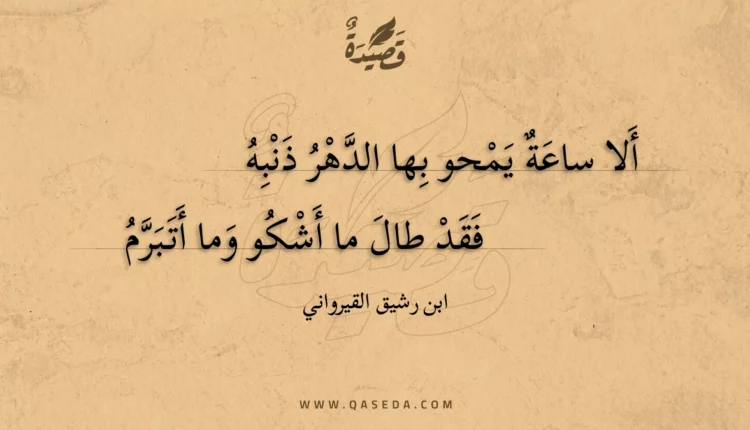 قَصِيْدَةٌ
أَلا ساعَةٌ يَمْحو بِها الدَّهْرُ ذَنْبِهُ
فَقَدْ طالَ ما أَشْكُو وَما أَتَبَرَّمُ
ابن رشيق القيرواني
WWW.QASEDA.COM